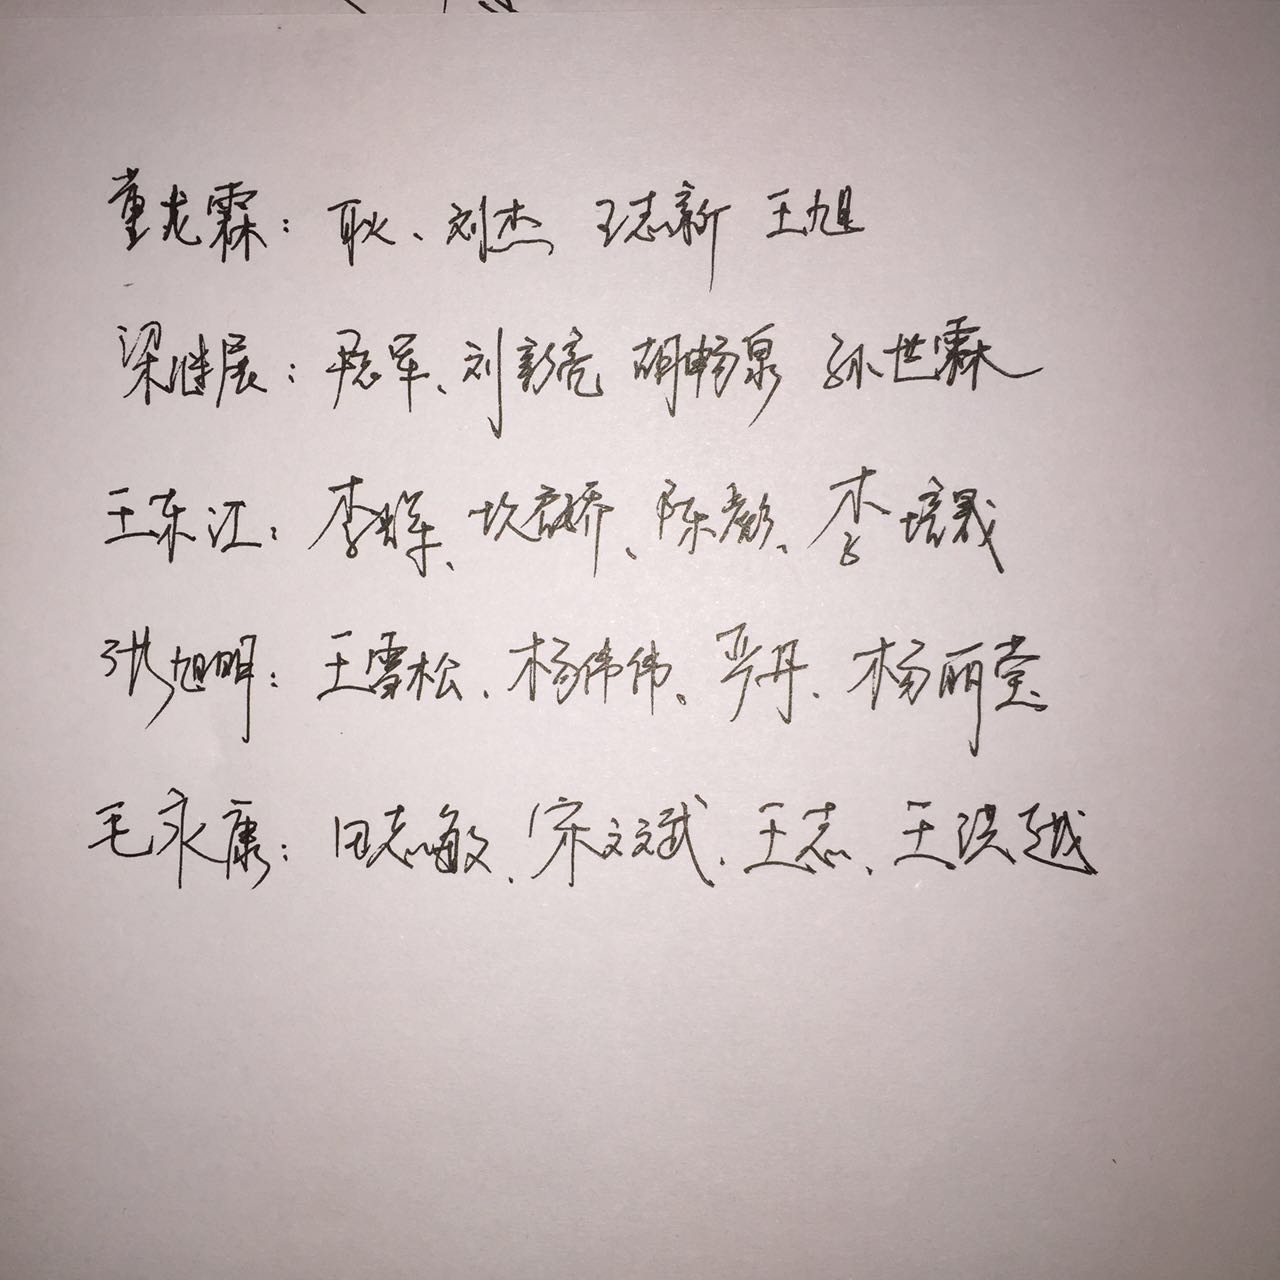 董龙霖：耿、刘杰 王志新 王旭
梁继展：军、刘彦亮 胡畅泉 孙世霖
王东江：李辉、坎君娇、陈彪、李培晟
张旭明：王雪松、杨伟伟、严丹、杨丽莹
毛永康：田志敏、宋文斌、王志、王洪越